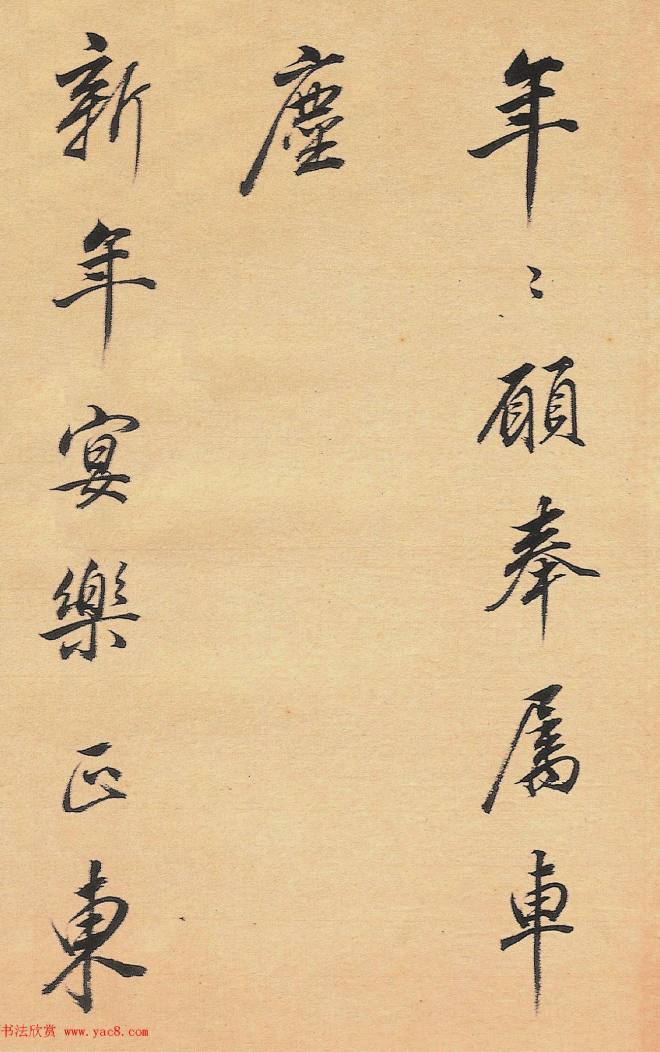 年〻願奉屬車
塵
新年宴樂正東
书法欣赏 www.yac8.com